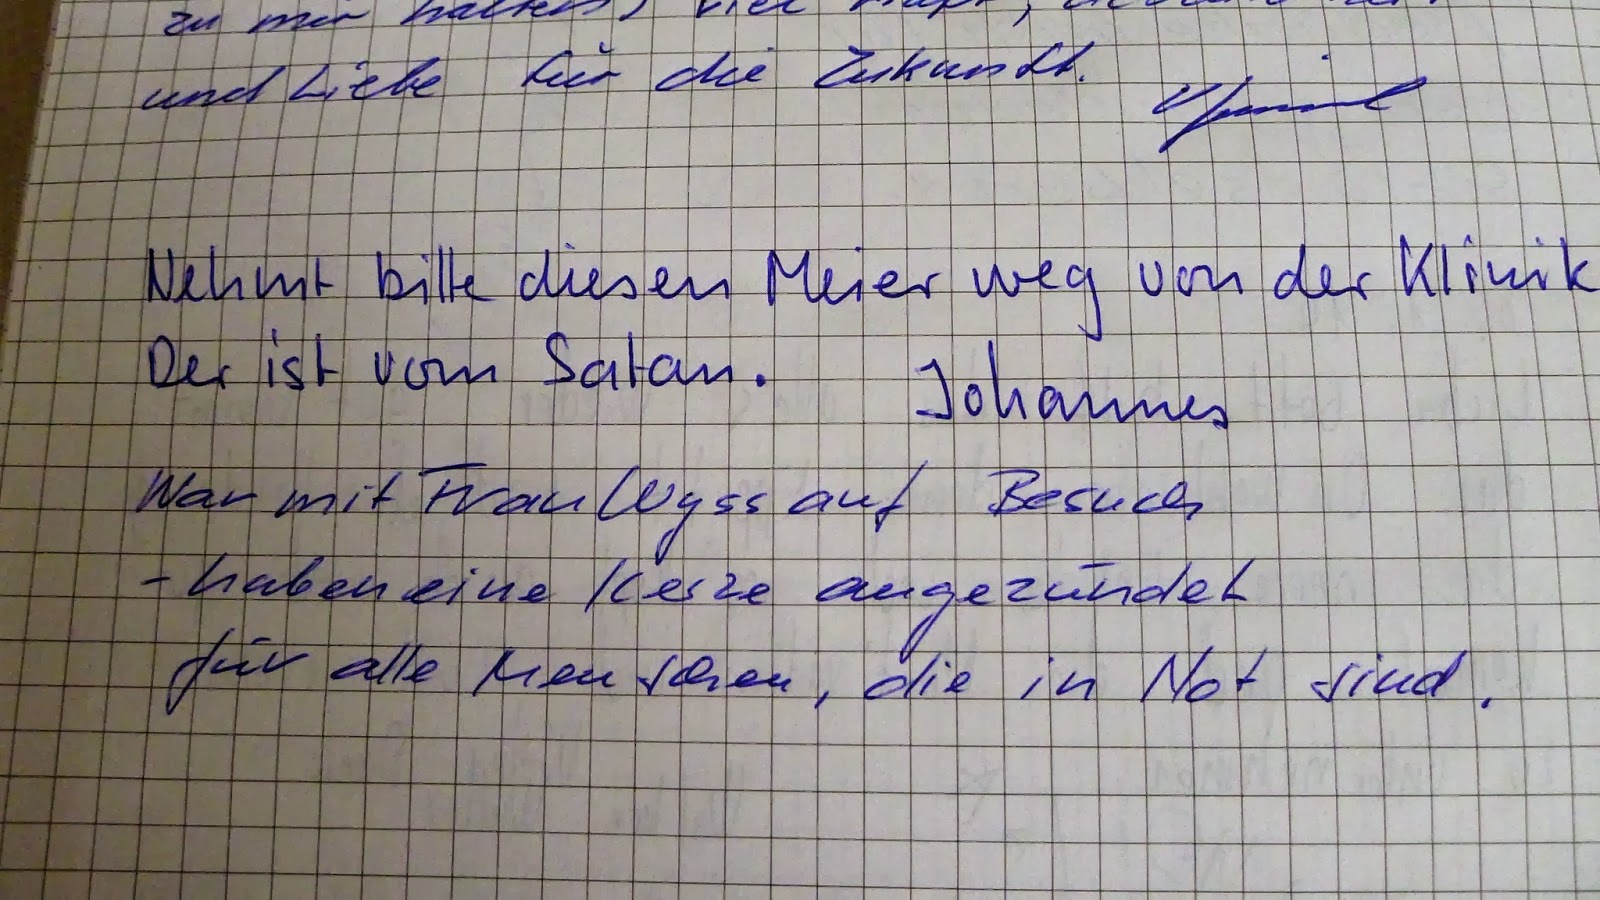 zu mir halten, viel
und Liebe für die Zukunft.
Nehmt bitte diesen Meier weg von der Klinik
Der ist vom Satan.
Johannes
War mit Frau Wyss auf Besuch
- haben eine Kerze angezündet
für alle Menschen, die in Not sind.